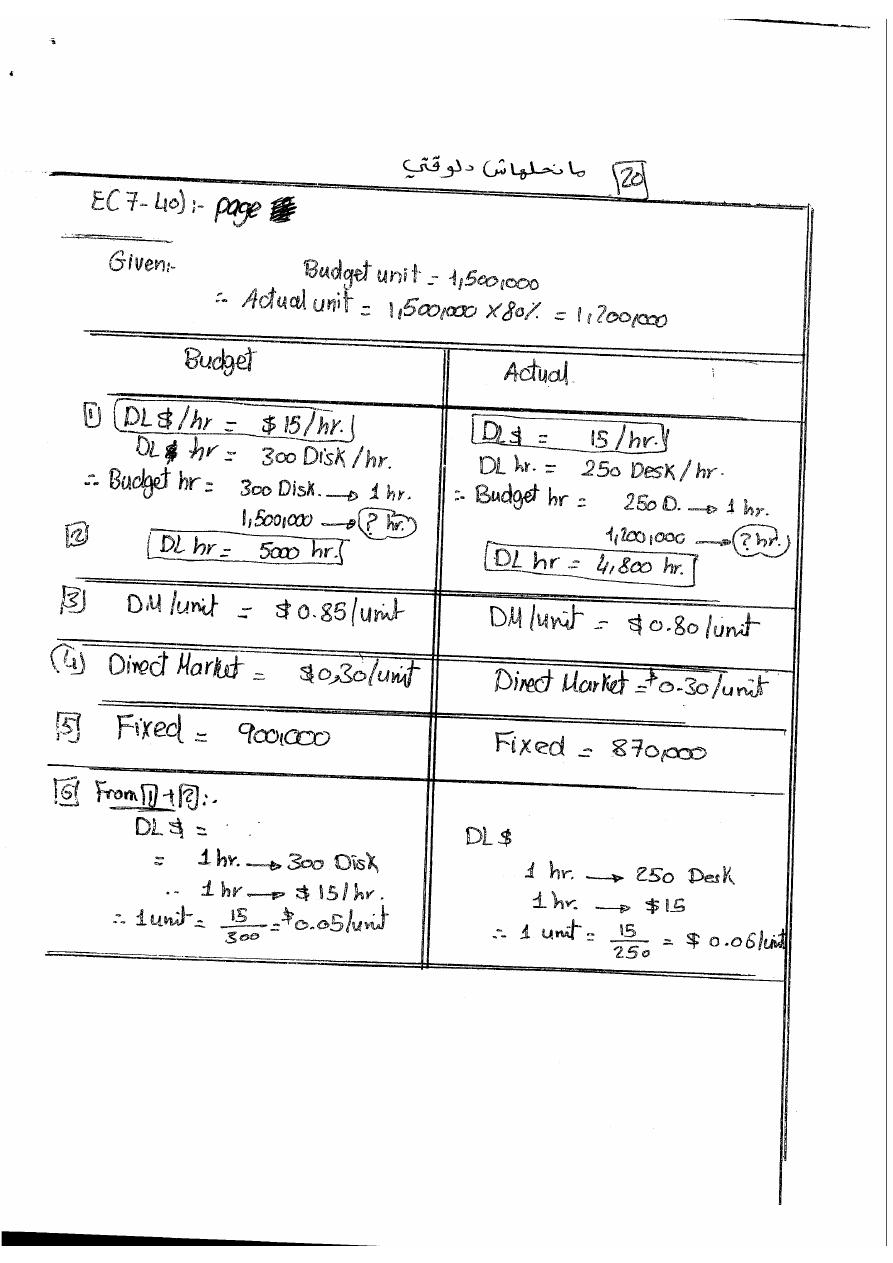 مانحلهاش دلوقتي 20
EC 7-40) :- page
Given:-
Budget unit = 1,500,000
∴ Actual unit = 1,500,000 X 80% = 1,200,000
Budget
Actual
1 DL $/hr = $ 15/hr.
DL hr = 300 Disk/hr.
∴ Budget hr = 300 Disk. → 1 hr.
1,500,000 → ? hr.
2 DL hr = 5000 hr.
DL $ = 15/hr.
DL hr. = 250 Desk/hr.
∴ Budget hr = 250 D. → 1 hr.
1,200,000 → ? hr.
DL hr = 4,800 hr.
3 DM/unit = $0.85/unit
DM/unit = $0.80/unit
(4) Direct Market = $0,30/unit
Direct Market = $0.30/unit
5 Fixed = 900,000
Fixed = 870,000
6 From 1 + 2:.
DL $ =
= 1 hr. → 300 Disk
∴ 1 hr → $ 15/hr.
∴ 1 unit = 15/300 = $0.05/unit
DL $
1 hr. → 250 Desk
1 hr. → $15
∴ 1 unit = 15/250 = $ 0.06/unit